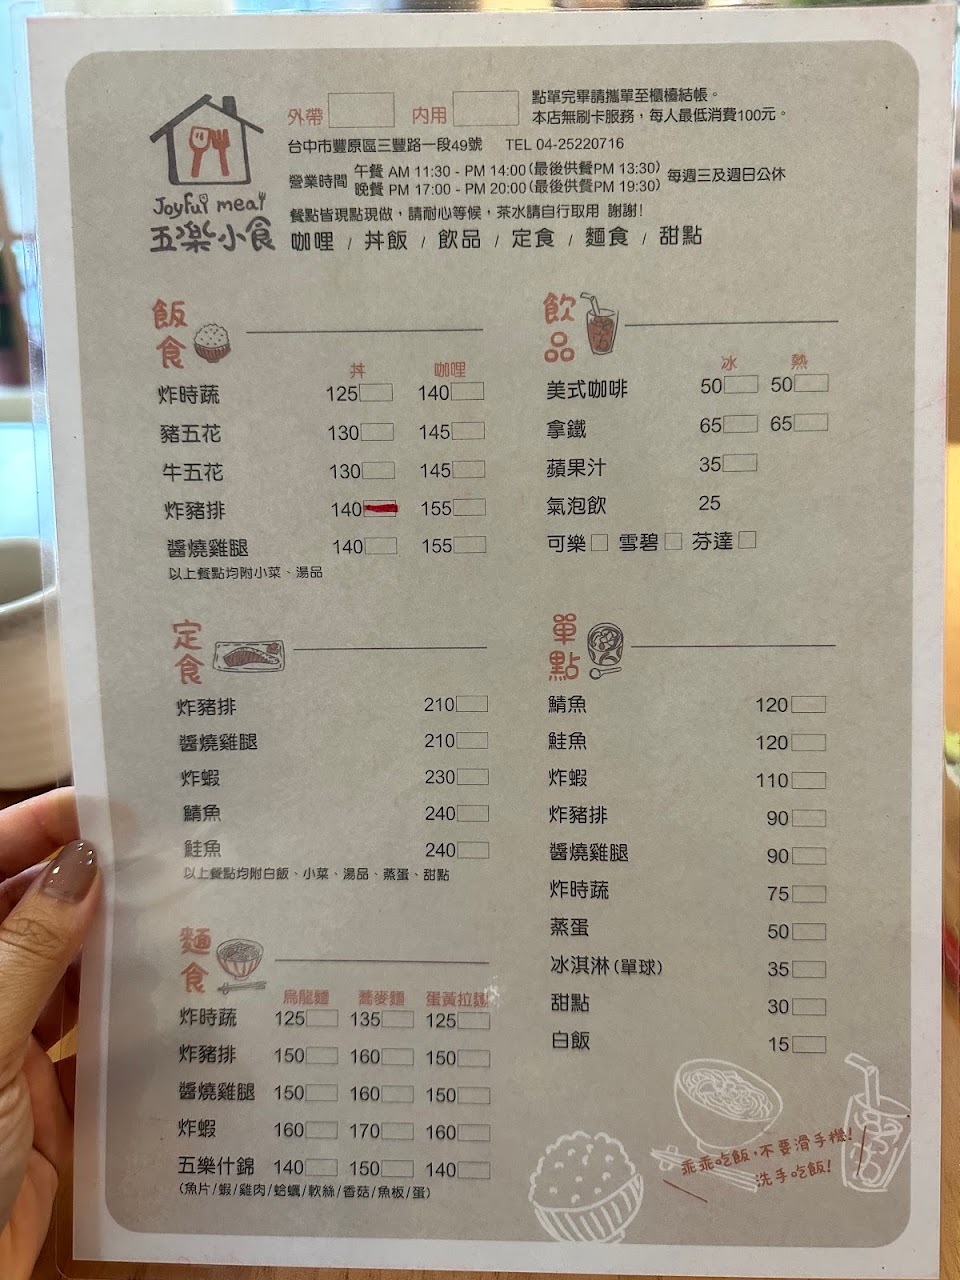 Joyful meal
五樂小食
外帶 內用
點單完畢請攜單至櫃檯結帳。
本店無刷卡服務，每人最低消費100元。
台中市豐原區三豐路一段49號 TEL 04-25220716
營業時間 午餐 AM 11:30 - PM 14:00(最後供餐PM 13:30)
晚餐 PM 17:00 - PM 20:00(最後供餐PM 19:30)
每週三及週日公休
餐點皆現點現做，請耐心等候，茶水請自行取用 謝謝!
咖哩 / 丼飯 / 飲品 / 定食 / 麵食 / 甜點
飯食
丼 咖哩
炸時蔬 125 140
豬五花 130 145
牛五花 130 145
炸豬排 140 155
醬燒雞腿 140 155
以上餐點均附小菜、湯品
飲品
冰 熱
美式咖啡 50 50
拿鐵 65 65
蘋果汁 35
氣泡飲 25
可樂 雪碧 芬達
定食
炸豬排 210
醬燒雞腿 210
炸蝦 230
鯖魚 240
鮭魚 240
以上餐點均附白飯、小菜、湯品、蒸蛋、甜點
單點
鯖魚 120
鮭魚 120
炸蝦 110
炸豬排 90
醬燒雞腿 90
炸時蔬 75
蒸蛋 50
冰淇淋(單球) 35
甜點 30
白飯 15
麵食
烏龍麵 蕎麥麵 蛋黃拉麵
炸時蔬 125 135 125
炸豬排 150 160 150
醬燒雞腿 150 160 150
炸蝦 160 170 160
五樂什錦 140 150 140
(魚片/蝦/雞肉/蛤蠣/軟絲/香菇/魚板/蛋)
乖乖吃飯，不要滑手機!
洗手吃飯!